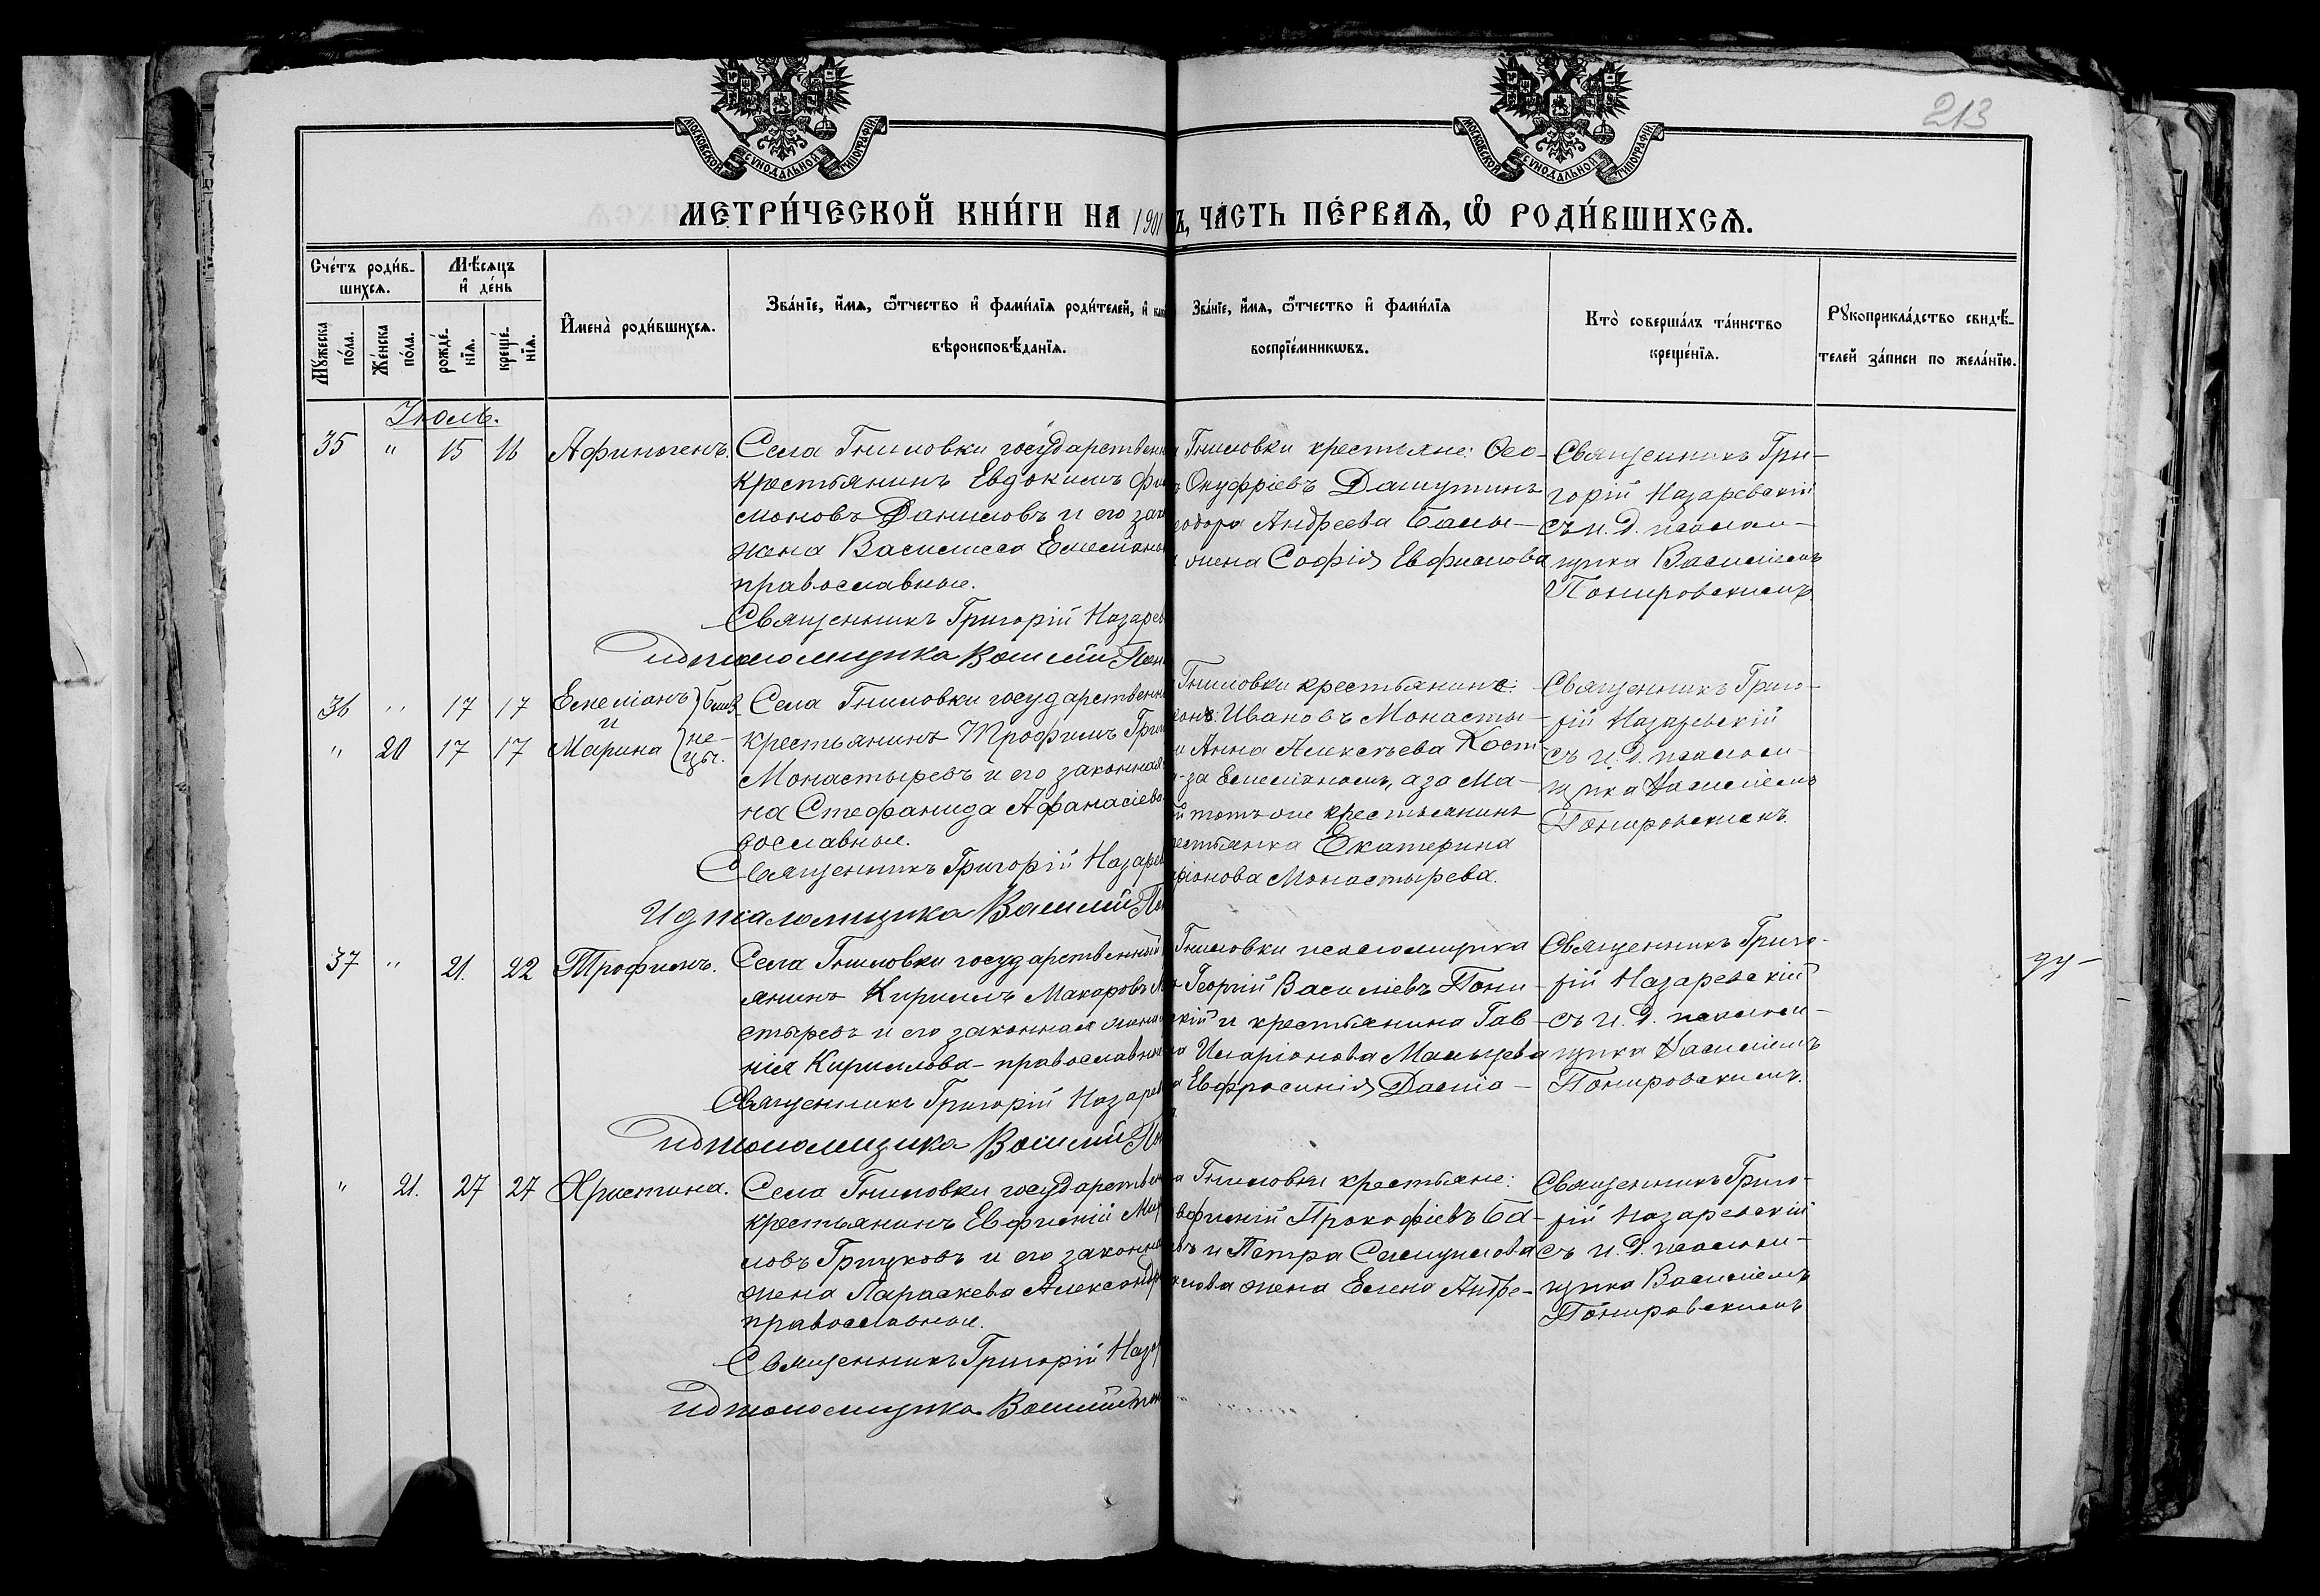 МОСКОВСКОЙ СѴНОДАЛЬНОЙ ТИПОГРАФІИ
МОСКОВСКОЙ СѴНОДАЛЬНОЙ ТИПОГРАФІИ
213
МЕТРИ́ЧЕСКОЙ КНИ́ГИ НА 1901
ЧА́СТЬ ПЕ́РВАѦ, Ѽ РОДИ́ВШИХСѦ.
Сче́тъ роди́в-
шихсѧ.
Мѣ́сѧцъ
и҆ де́нь
Мꙋжеска
по́ла.
Же́нска
по́ла.
рожде́-
нїѧ.
креще́-
нїѧ.
И҆мена̀ роди́вшихсѧ.
Зва́нїе, и҆́мѧ, ѻ҆́тчество и҆ фами́лїѧ роди́телей, и҆
вѣроисповѣ́данїѧ.
Зва́нїе, и҆́мѧ, ѻ҆́тчество и҆ фами́лїѧ
воспрїе́мникѡвъ.
Кто̀ соверша́лъ та́инство
креще́нїѧ.
Рꙋкоприкла́дство свидѣ́-
телей за́писи по жела́нїю.
Іюль.
35 " 15 16 Афиногенъ.
Села Гниловки государственн
крестьянинъ Евдокимъ Фи
моновъ Даниловъ и его зак
жена Василисса Емеліано
православные.
Священникъ Григорій Назарев
ид псаломщика Василій Пон
Гниловки крестьяне: Ѳео-
Онуфріевъ Дашутинъ
еодора Андреева Балы-
жена Софія Евфимова
Священникъ Гри-
горій Назаревскій
съ и. д. псалом-
щика Василіемъ
Понировскимъ.
36 " 17 17 Емеліанъ
и
" 20 17 17 Марина
близ-
не-
цы.
Села Гниловки государственн
крестьянинъ Трофимъ Григ
Монастыревъ и его законная
на Стефанида Аѳанасіева
вославные.
Священникъ Григорій Назарев
И д псаломщика Василій По
Гниловки крестьянинъ:
Ивановъ Монасты-
Анна Алексѣева Кост
-за Емеліаномъ, а за Ма-
тотъ же крестьянинъ
естьянка Екатерина
ріонова Монастырева.
Священникъ Григо-
рій Назаревскій
съ и. д. псалом-
щика Василіемъ
Понировскимъ.
37 " 21. 22 Трофимъ.
Села Гниловки государственный
янинъ Кириллъ Макаровъ М
стыревъ и его законная жена
нія Кириллова - православны
Священникъ Григорій Назарев
ид псаломщика Василій По
Гниловки псаломщика
Георгій Василіевъ Пони-
скій и крестьянина Гав-
Иларіонова Мальцева
Евфросинія Даніо-
Священникъ Григо-
рій Назаревскій
съ и. д. псалом-
щика Василіемъ
Понировскимъ.
" 21. 27 27 Христина.
Села Гниловки государствен
крестьянинъ Евфимій Мир
новъ Грицковъ и его законна
жена Параскева Александр
православные.
Священникъ Григорій Наз
ид псаломщика Василій Пон
Гниловки крестьяне:
вфимій Прокофіевъ Ба-
и Петра Самуилова
жена Елена Андре-
Священникъ Григо-
рій Назаревскій
съ и. д. псалом-
щика Василіемъ
Понировскимъ